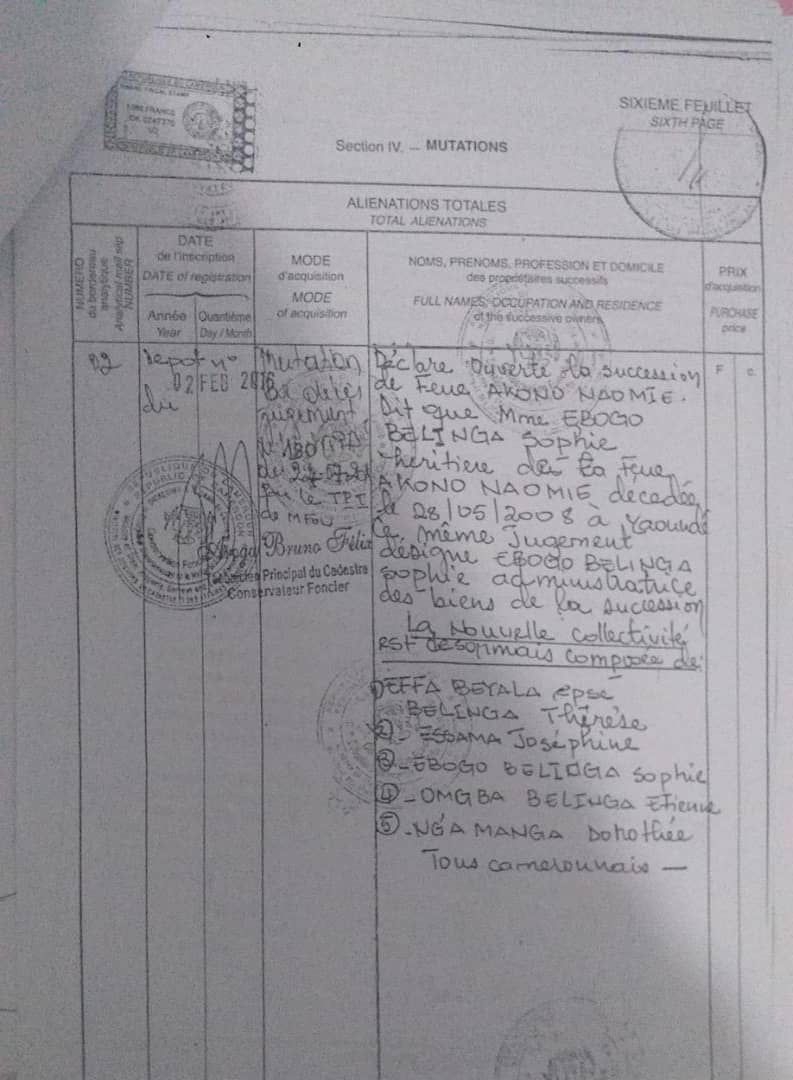 SIXIEME FEUILLET
SIXTH PAGE
Section IV. — MUTATIONS
ALIENATIONS TOTALES
TOTAL ALIENATIONS
NUMERO
du bordereau
analytique
Analytical mail slip
NUMBER
DATE
de l'inscription
DATE of registration
Année
Year
Quantième
Day / Month
MODE
d'acquisition
MODE
of acquisition
NOMS, PRENOMS, PROFESSION ET DOMICILE
des propriétaires successifs
FULL NAMES, OCCUPATION AND RESIDENCE
of the successive owners
PRIX
d'acquisition
PURCHASE
price
F c.
02
Depot n°
02 FEB 2016
du
Mutation
décès
jugement
du
par le TPI
de MFOU
Bruno Félix
Principal du Cadastre
Conservateur Foncier
Déclare Ouverte la succession
de Feue AKONO NAOMIE.
Dit que Mme EBOGO
BELINGA Sophie
heritiere de la Feue
AKONO NAOMIE decedée
le 28/05/2008 à Yaoundé
Ce même Jugement
désigne EBOGO BELINGA
Sophie administratrice
des biens de la succession
La Nouvelle collectivité
est desormais composée de:
DEFFA BEYALA epse
BELINGA Thérèse
②- ESSAMA Joséphine
③-EBOGO BELINGA Sophie
④-OMGBA BELINGA Etienne
⑤-NGA MANGA Dorothée
Tous camerounais —